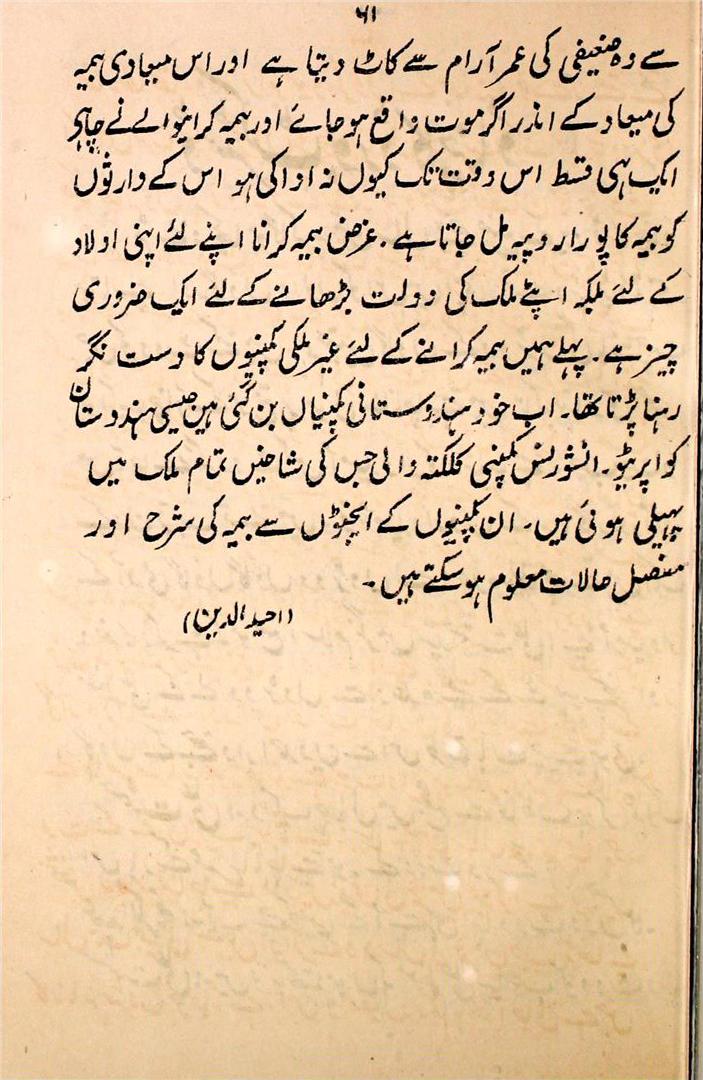 ۶۱
سے وہ ضعیفی کی عمر آرام سے کاٹ دیتا ہے اور اس میعادی بیمہ
کی میعاد کے اندر اگر موت واقع ہو جائے اور بیمہ کرانیوالے نے چاہے
ایک ہی قسط اس وقت تک کیوں نہ ادا کی ہو اس کے وارثوں
کو بیمہ کا پورا روپیہ مل جاتا ہے۔ غرض بیمہ کرانا اپنے لئے اپنی اولاد
کے لئے بلکہ اپنے ملک کی دولت بڑھانے کے لئے ایک ضروری
چیز ہے۔ پہلے ہمیں بیمہ کرانے کے لئے غیر ملکی کمپنیوں کا دست نگر
رہنا پڑتا تھا۔ اب خود ہندوستانی کمپنیاں بن گئی ہیں جیسی ہندوستان
کواپریٹو۔ انشورنس کمپنی کلکتہ والی جس کی شاخیں تمام ملک میں
پھیلی ہوئی ہیں۔ ان کمپنیوں کے ایجنٹوں سے بیمہ کی شرح اور
مفصل حالات معلوم ہو سکتے ہیں۔